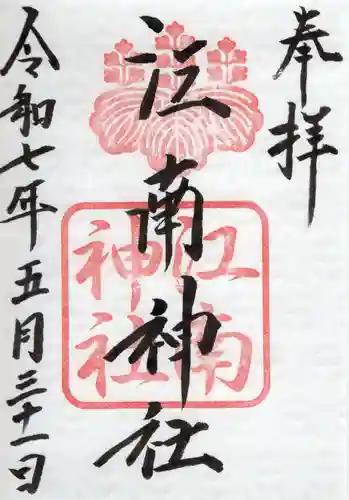 奉拝
江南神社
江南
神社
令和七年五月三十一日